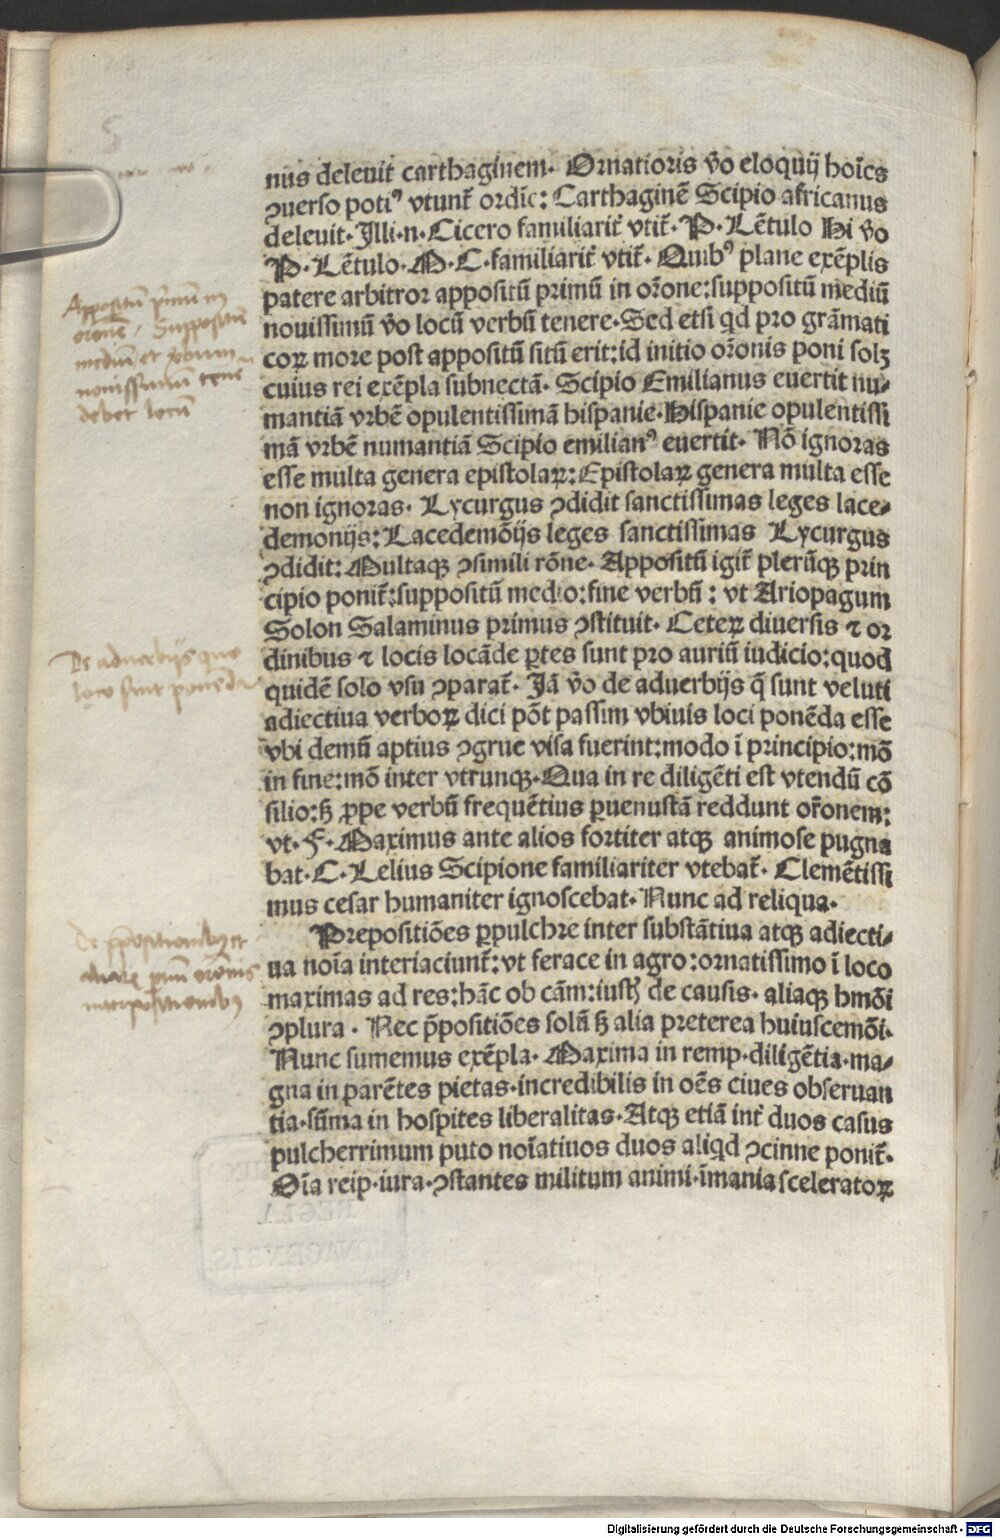 nus deleuit carthaginem. Ornatioris v̄o eloquij hoīes
ꝯuerso potiꝰ vtunt̄ ordīe: Carthaginē Scipio africanus
deleuit. Illi.n. Cicero familiarit̄ vtit̄. P. Lētulo Hi v̄o
P. Lētulo. M. C. familiarit̄ vtit̄. Quibꝰ plane exēplis
patere arbitror appositū primū in or̄one: suppositū mediū
nouissimū v̄o locū verbū tenere. Sed etsi qd pro grāmati
coꝝ more post appositū sitū erit: id initio or̄onis poni solꝫ
cuius rei exēpla subnectā. Scipio Emilianus euertit nu⸗
mantiā vrbē opulentissimā hispanie. Hispanie opulentissi
mā vrbē numantiā Scipio emilianꝰ euertit. Nō ignoras
esse multa genera epistolaꝝ: Epistolaꝝ genera multa esse
non ignoras. Lycurgus ꝯdidit sanctissimas leges lace⸗
demonijs: Lacedemōijs leges sanctissimas Lycurgus
ꝯdidit: Multaqꝫ ꝯsimili rōne. Appositū igit̄ plerūqꝫ prin
cipio ponit̄: suppositū medio: fine verbū: vt Ariopagum
Solon Salaminus primus ꝯstituit. Ceteꝝ diuersis ⁊ or
dinibus ⁊ locis locāde ꝑtes sunt pro auriū iudicio: quod
quidē solo vsu ꝯparat̄. Jā v̄o de aduerbijs q̄ sunt veluti
adiectiua verboꝝ dici pōt passim vbiuis loci ponēda esse
vbi demū aptius ꝯgrue visa fuerint: modo ī principio: mō
in fine: mō inter vtrunqꝫ. Qua in re diligēti est vtendū cō
silio: sꝫ ꝓpe verbū frequētius ꝑuenustā reddunt or̄onem:
vt. F. Maximus ante alios fortiter atqꝫ animose pugna
bat. C. Lelius Scipione familiariter vtebat̄. Clemētissi
mus cesar humaniter ignoscebat. Nunc ad reliqua.
Prepositiōes ꝑpulchre inter substātiua atqꝫ adiecti⸗
ua noīa interiaciunt̄: vt ferace in agro: ornatissimo ī loco
maximas ad res: hāc ob cām: iustꝭ de causis. aliaqꝫ hmōi
ꝯplura. Nec p̄positiōes solū sꝫ alia preterea huiuscemōi.
Nunc sumemus exēpla. Maxima in remp. diligētia. ma⸗
gna in parētes pietas. incredibilis in oēs ciues obseruan
tia. sūma in hospites liberalitas. Atqꝫ etiā int̄ duos casus
pulcherrimum puto noīatiuos duos aliqd ꝯcinne ponit̄.
Oīa reip. iura. ꝯstantes militum animi. īmania sceleratoꝝ
Appositū primū in
oronē. Suppositū
mediū et verbum
nouissimum tene
debet locū
De aduerbijs quo
loco sint ponēda
De p̄positionibꝫ et
interpositionibꝫ
Digitalisierung gefördert durch die Deutsche Forschungsgemeinschaft - DFG